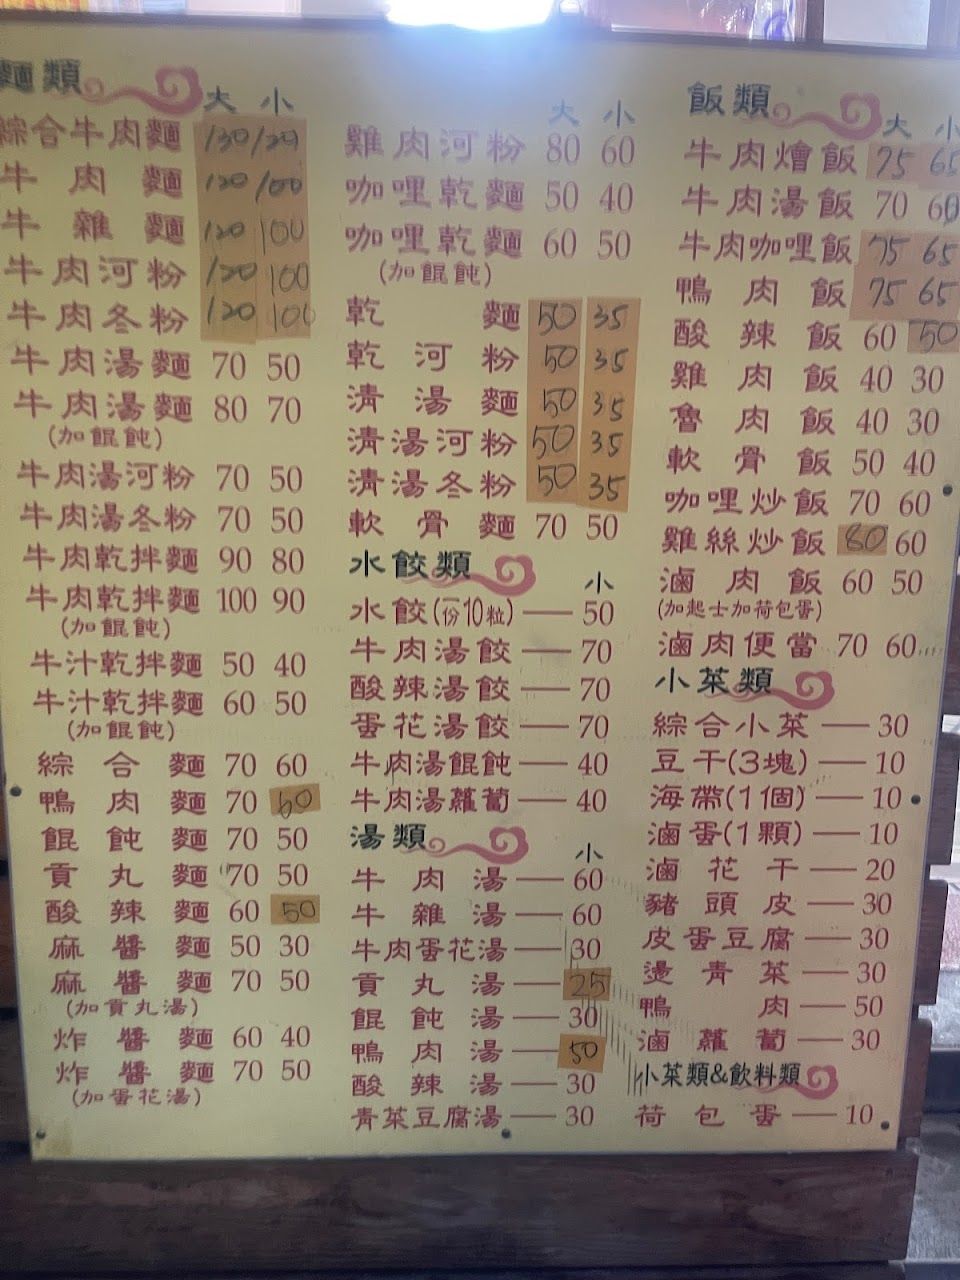 麵類
大 小
綜合牛肉麵 130/120
牛肉麵 120/100
牛雜麵 120 100
牛肉河粉 120 100
牛肉冬粉 120 100
牛肉湯麵 70 50
牛肉湯麵 80 70
(加餛飩)
牛肉湯河粉 70 50
牛肉湯冬粉 70 50
牛肉乾拌麵 90 80
牛肉乾拌麵 100 90
(加餛飩)
牛汁乾拌麵 50 40
牛汁乾拌麵 60 50
(加餛飩)
綜合麵 70 60
鴨肉麵 70 60
餛飩麵 70 50
貢丸麵 70 50
酸辣麵 60 50
麻醬麵 50 30
麻醬麵 70 50
(加貢丸湯)
炸醬麵 60 40
炸醬麵 70 50
(加蛋花湯)
大 小
雞肉河粉 80 60
咖哩乾麵 50 40
咖哩乾麵 60 50
(加餛飩)
乾麵 50 35
乾河粉 50 35
清湯麵 50 35
清湯河粉 50 35
清湯冬粉 50 35
軟骨麵 70 50
水餃類
小
水餃(一份10粒) — 50
牛肉湯餃 — 70
酸辣湯餃 — 70
蛋花湯餃 — 70
牛肉湯餛飩 — 40
牛肉湯蘿蔔 — 40
湯類
小
牛肉湯 — 60
牛雜湯 — 60
牛肉蛋花湯 — 30
貢丸湯 — 25
餛飩湯 — 30
鴨肉湯 — 50
酸辣湯 — 30
青菜豆腐湯 — 30
飯類
大 小
牛肉燴飯 75 65
牛肉湯飯 70 60
牛肉咖哩飯 75 65
鴨肉飯 75 65
酸辣飯 60 50
雞肉飯 40 30
魯肉飯 40 30
軟骨飯 50 40
咖哩炒飯 70 60
雞絲炒飯 80 60
滷肉飯 60 50
(加起士加荷包蛋)
滷肉便當 70 60
小菜類
綜合小菜 — 30
豆干(3塊) — 10
海帶(1個) — 10
滷蛋(1顆) — 10
滷花干 — 20
豬頭皮 — 30
皮蛋豆腐 — 30
燙青菜 — 30
鴨肉 — 50
滷蘿蔔 — 30
小菜類&飲料類
荷包蛋 — 10